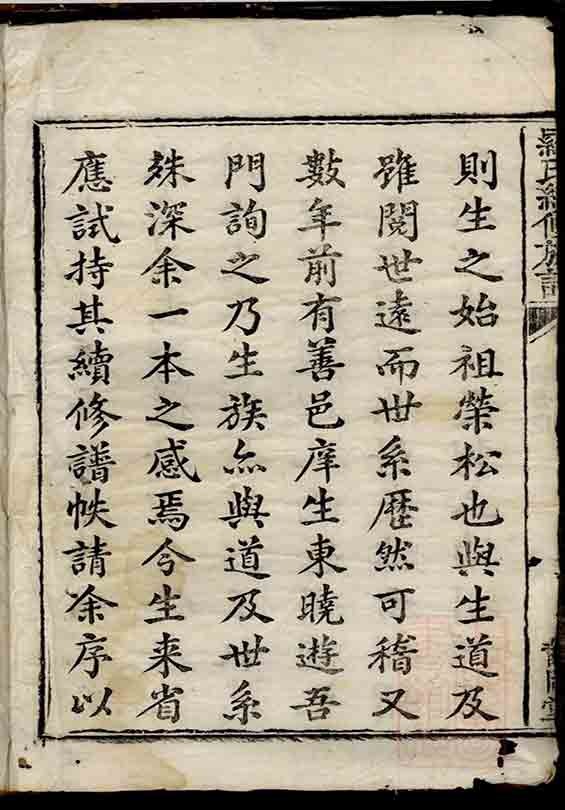 羅氏續修族譜
則生之始祖榮松也與生道及
雖閱世遠而世系歷然可稽又
數年前有善邑庠生東曉遊吾
門詢之乃生族亦與道及世系
殊深余一本之感焉今生来省
應試持其續修譜帙請余序以
堂